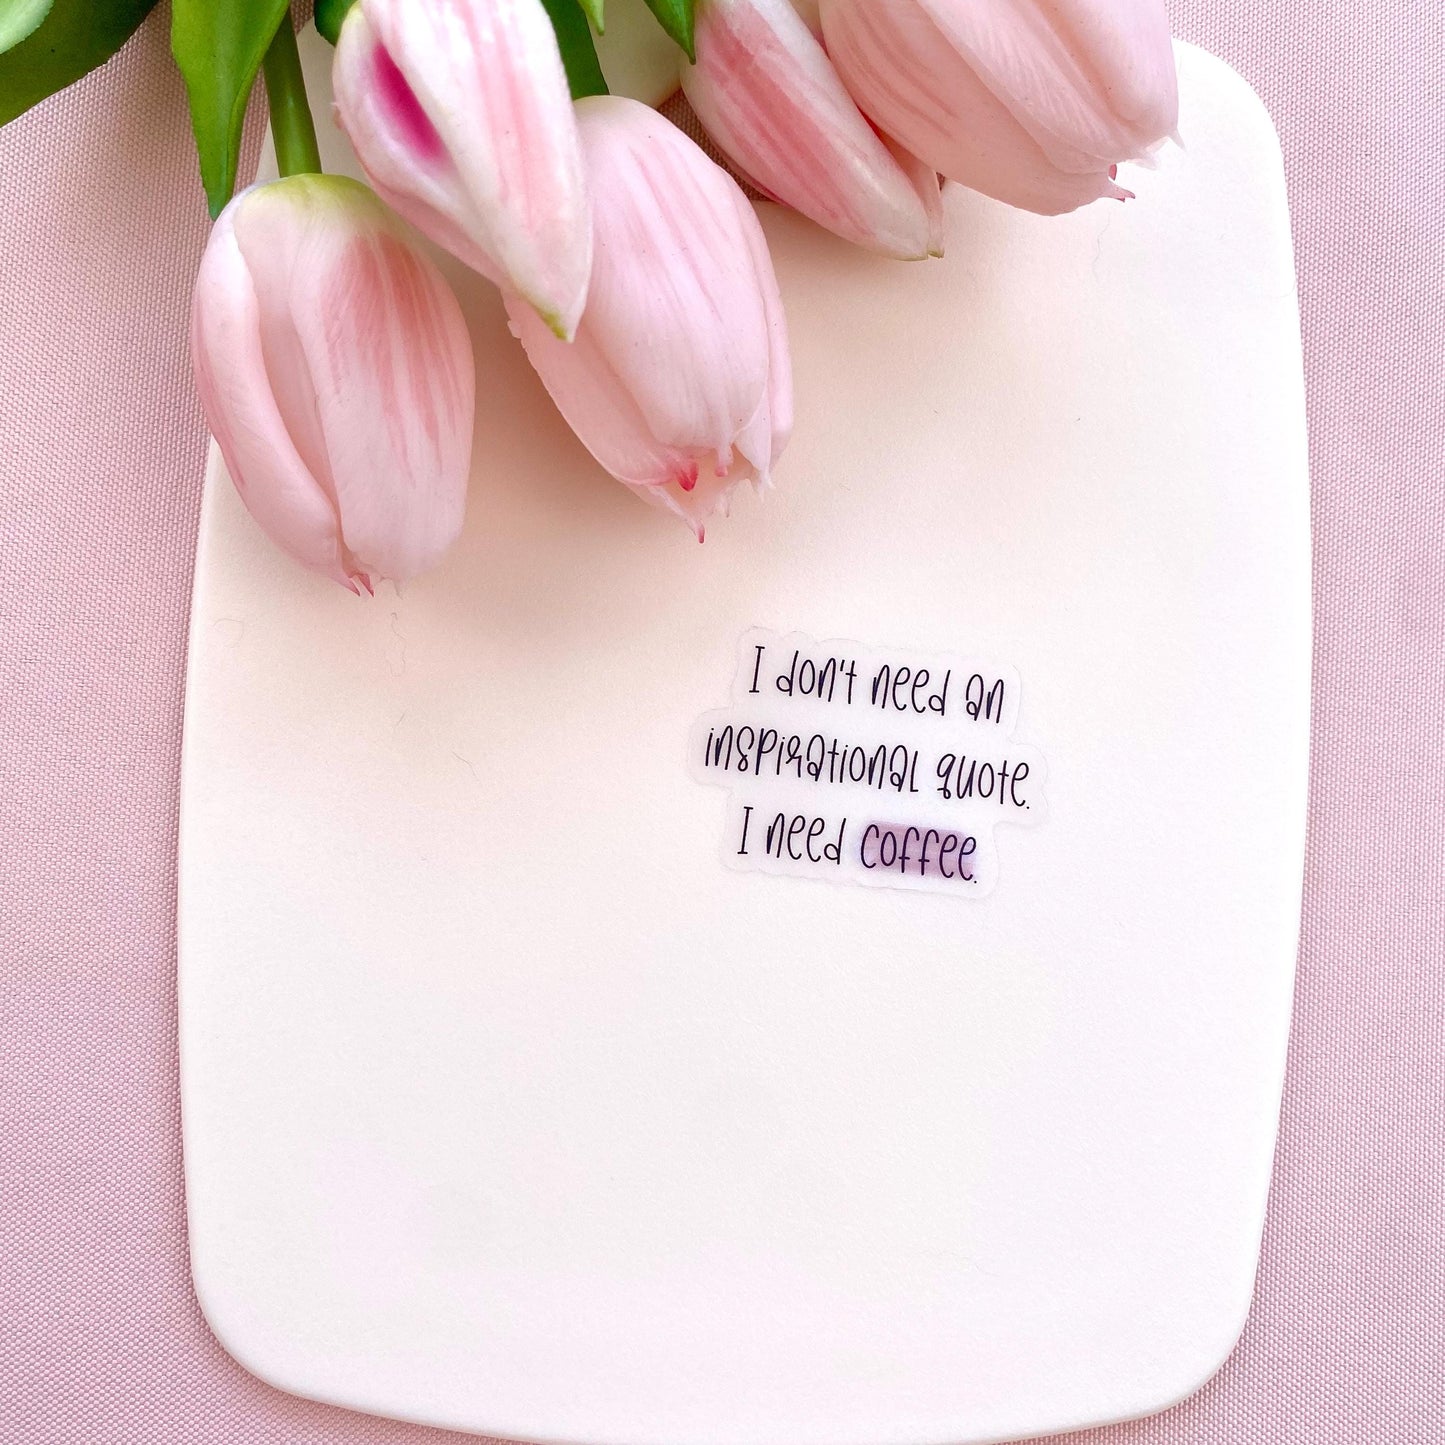 I don't need an
inspirational quote.
I need coffee.